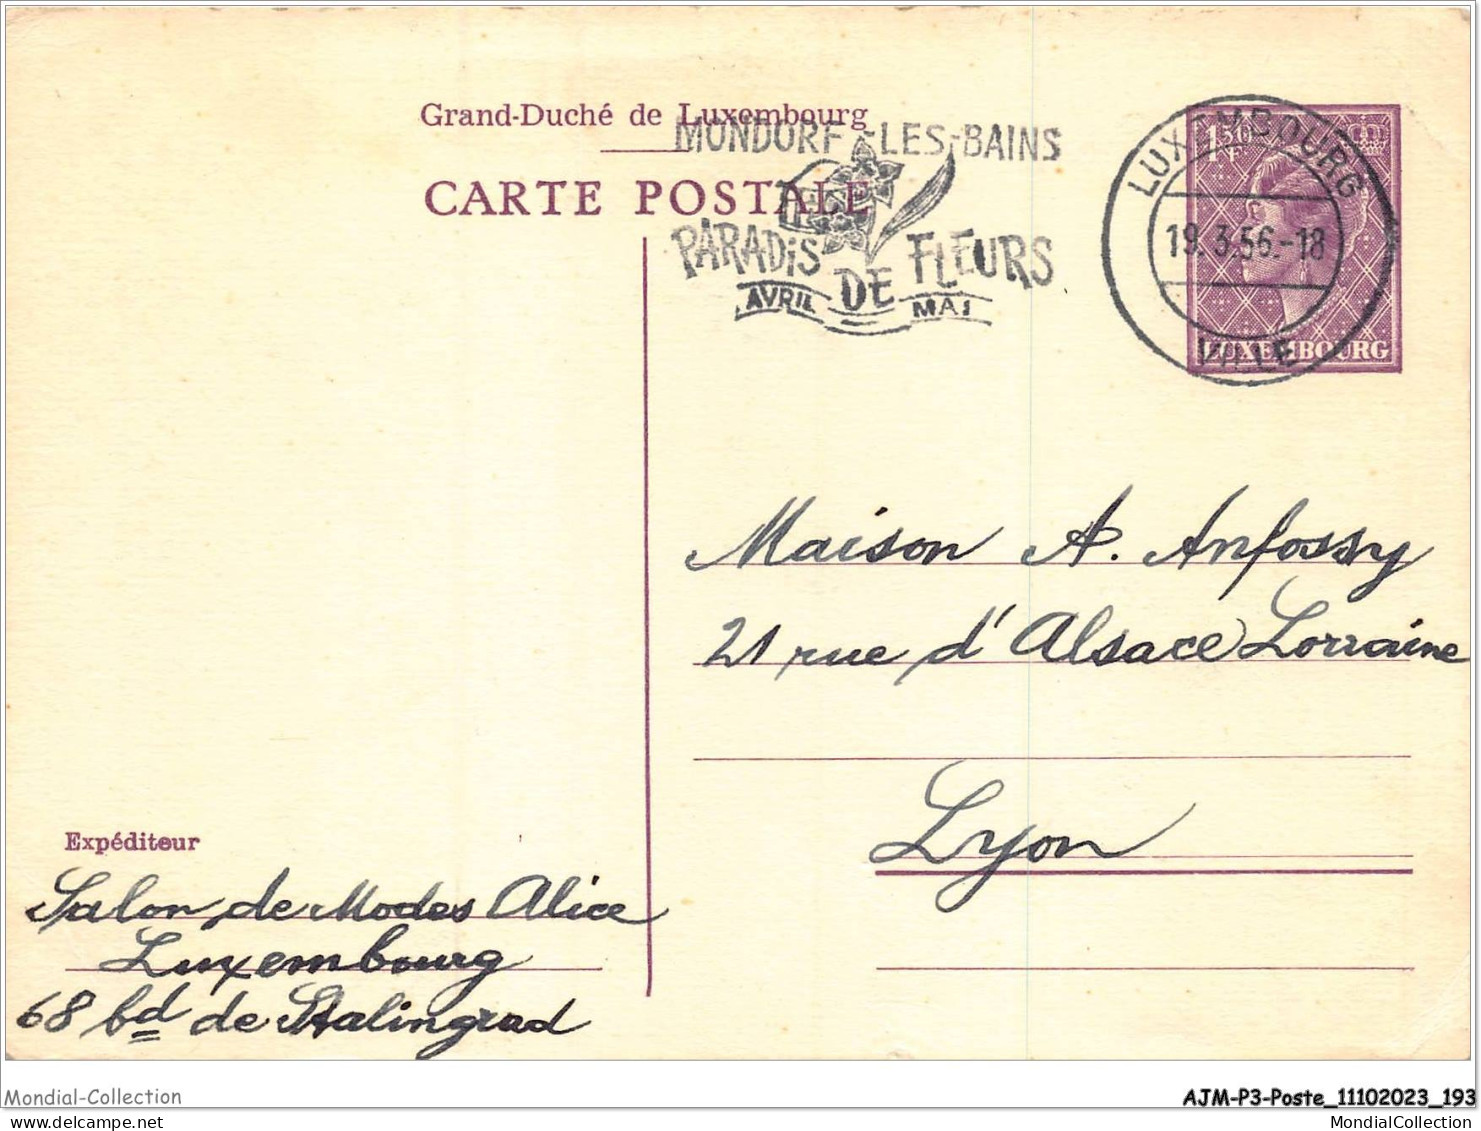 Grand-Duché de Luxembourg
CARTE POSTALE
MONDORF-LES-BAINS
PARADIS DE FLEURS
AVRIL MAI
LUXEMBOURG
19.3.56.-18
VILLE
1.50 F
LUXEMBOURG
Maison A. Anfossy
21 rue d'Alsace Lorraine
Lyon
Expéditeur
Salon de Modes Alice
Luxembourg
68 bd de Stalingrad
Mondial-Collection
AJM-P3-Poste_11102023_193
www.delcampe.net
MondialCollection